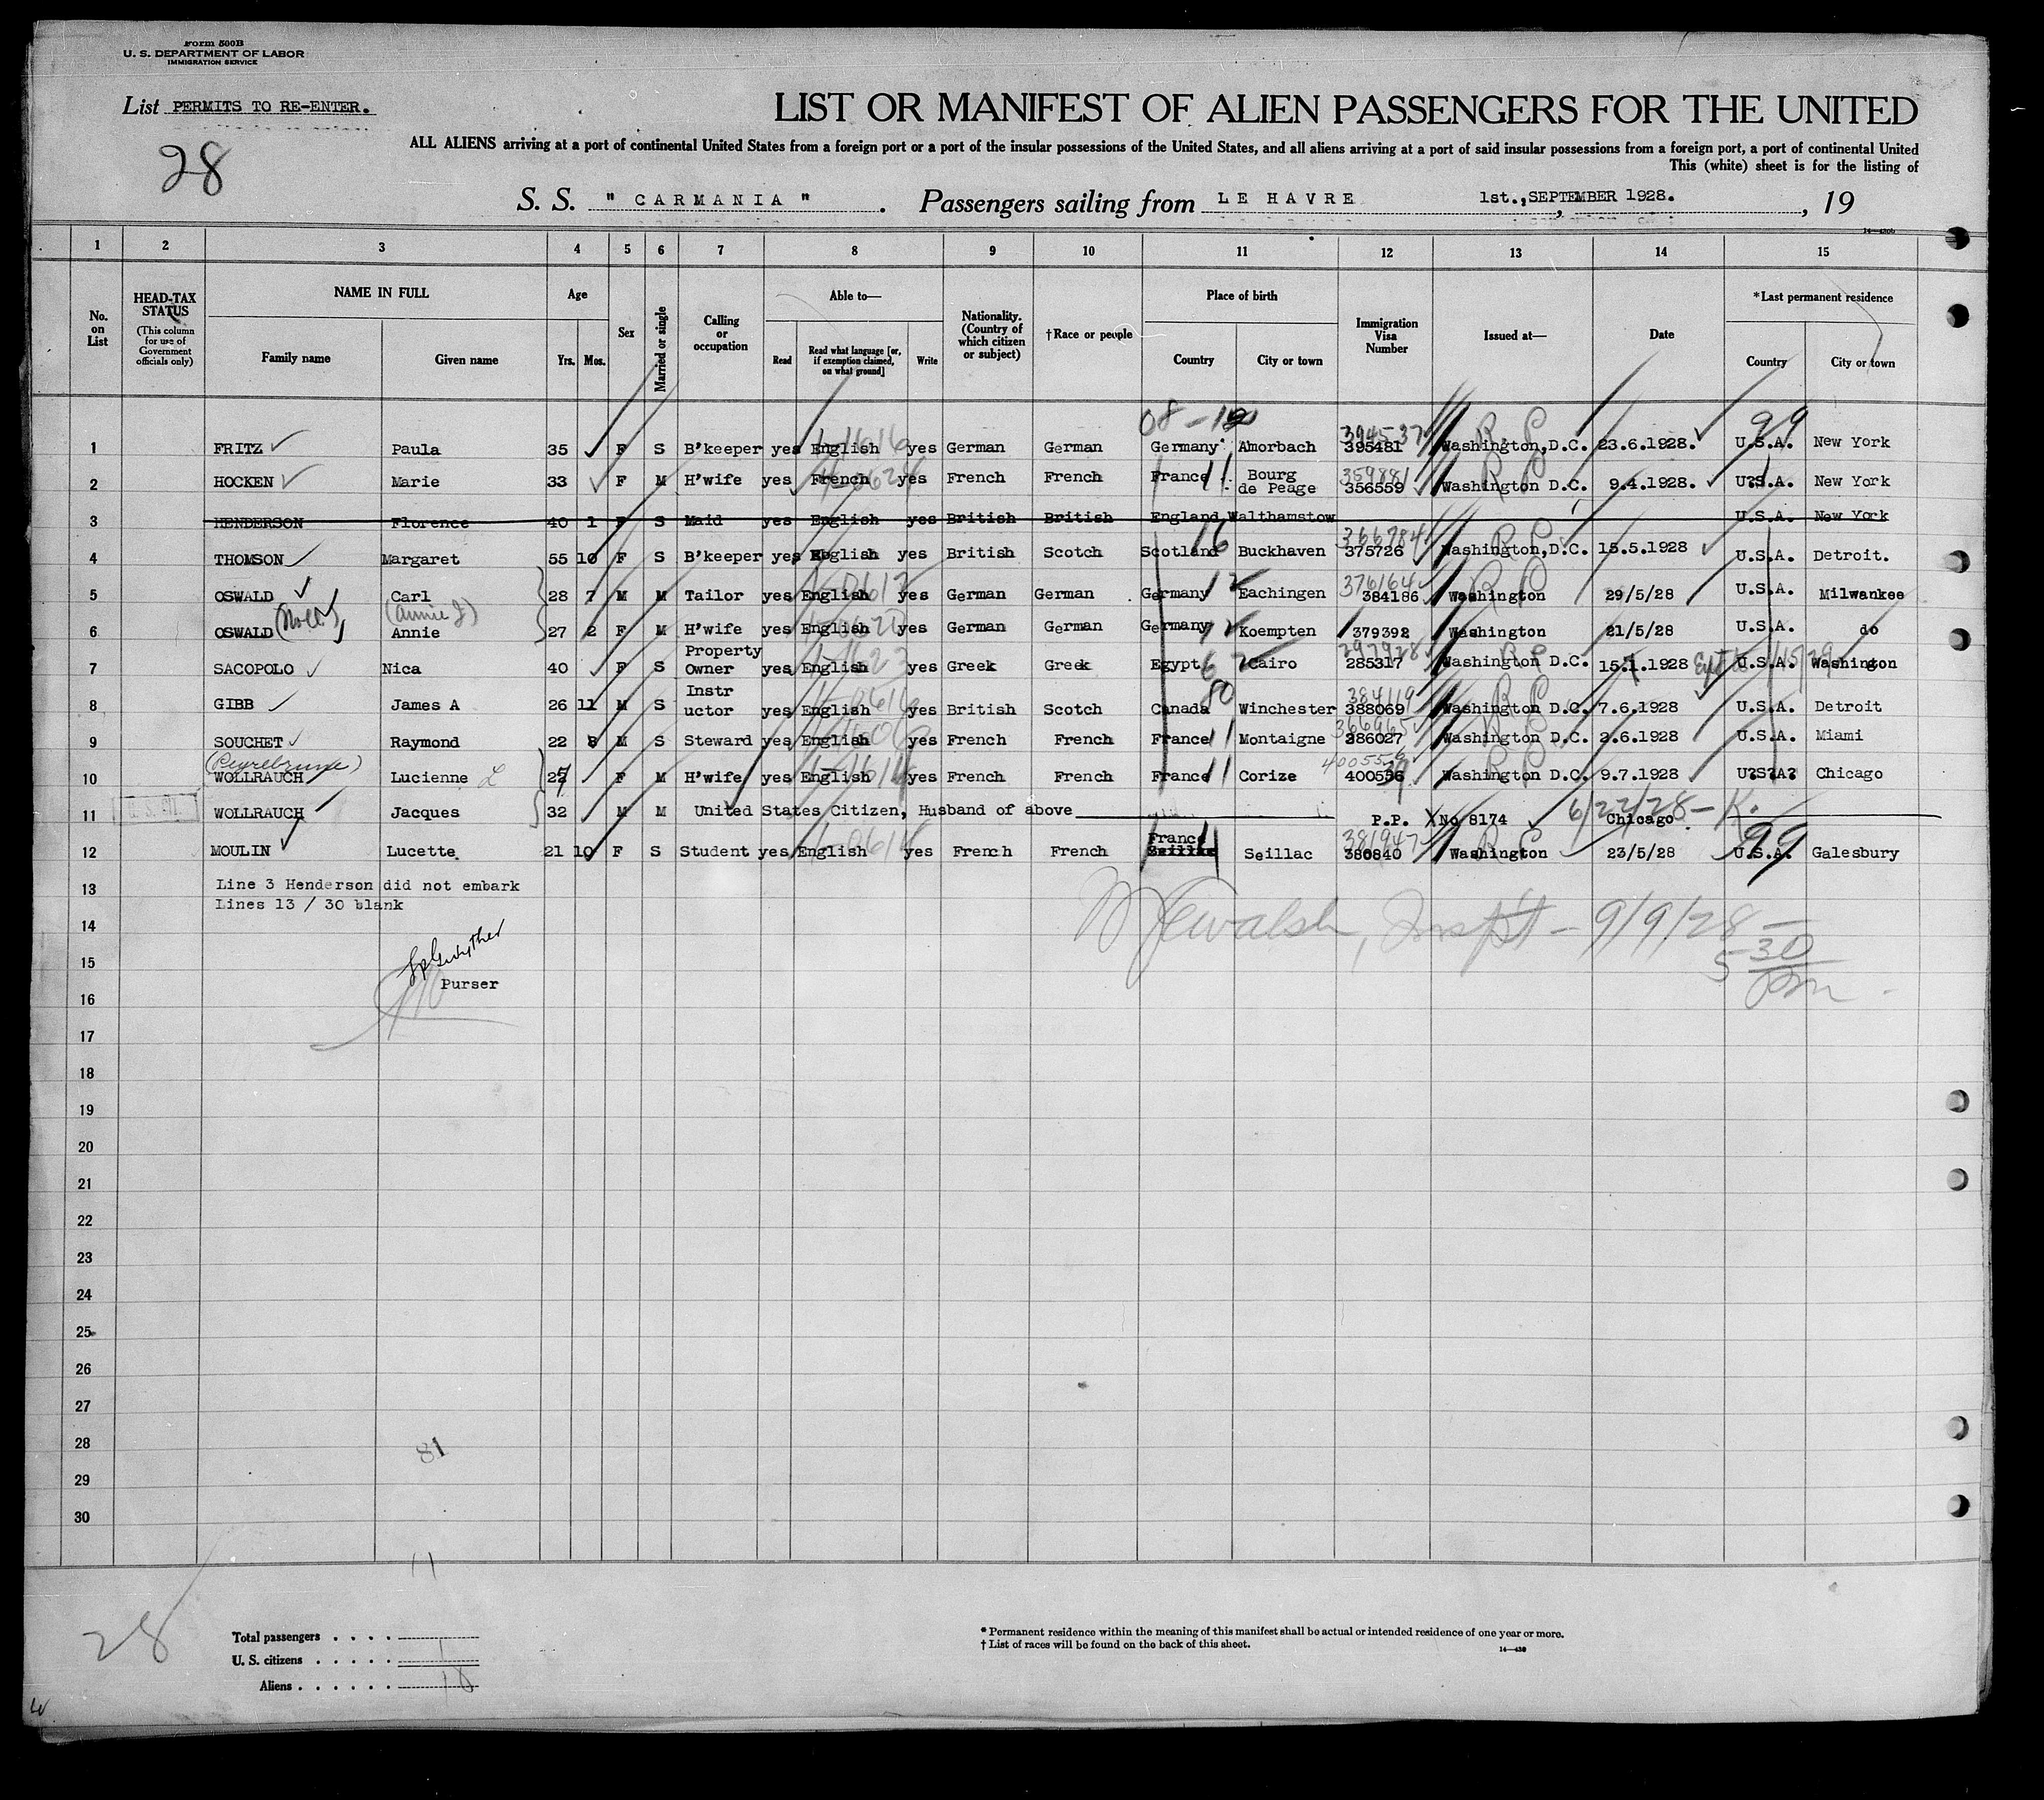 Form 500B
U. S. DEPARTMENT OF LABOR
IMMIGRATION SERVICE
List PERMITS TO RE-ENTER.
28
LIST OR MANIFEST OF ALIEN PASSENGERS FOR THE UNITED
ALL ALIENS arriving at a port of continental United States from a foreign port or a port of the insular possessions of the United States, and all aliens arriving at a port of said insular possessions from a foreign port, a port of continental United
This (white) sheet is for the listing of
S. S. " CARMANIA ". Passengers sailing from LE HAVRE 1st., SEPTEMBER 1928. , 19
14—430b
1 2 3 4 5 6 7 8 9 10 11 12 13 14 15
No. on List
HEAD-TAX STATUS (This column for use of Government officials only)
NAME IN FULL
Family name Given name
Age
Yrs. Mos.
Sex
Married or single
Calling or occupation
Able to—
Read Read what language [or, if exemption claimed, on what ground] Write
Nationality. (Country of which citizen or subject)
†Race or people
Place of birth
Country City or town
Immigration Visa Number
Issued at—
Date
*Last permanent residence
Country City or town
08-12 99
1 FRITZ Paula 35 F S B'keeper yes English yes German German Germany Amorbach 394537 395481 Washington,D.C. R P 23.6.1928. U.S.A. New York
2 HOCKEN Marie 33 F M H'wife yes French yes French French France 11 Bourg de Peage 359881 356559 Washington D.C. R P 9.4.1928. U?S.A. New York
3 HENDERSON Florence 40 1 F S Maid yes English yes British British England Walthamstow U.S.A. New York
4 THOMSON Margaret 55 10 F S B'keeper yes English yes British Scotch Scotland 16 Buckhaven 366784 375726 Washington,D.C. R P 15.5.1928 U.S.A. Detroit.
5 OSWALD Carl 28 7 M M Tailor yes English yes German German Germany 12 Eachingen 376164 384186 Washington R P 29/5/28 U.S.A. Milwankee
6 OSWALD (Noll) Annie (Annie J) 27 2 F M H'wife yes English yes German German Germany 12 Koempten 379392 Washington 21/5/28 U.S.A. do
7 SACOPOLO Nica 40 F S Property Owner yes English yes Greek Greek Egypt Cairo 297928 285317 Washington D.C. R P 15.1.1928 U.S.A. Washington
8 GIBB James A 26 11 M S Instr uctor yes English yes British Scotch Canada 80 Winchester 384119 388069 Washington D.C. R P 7.6.1928 U.S.A. Detroit
9 SOUCHET Raymond 22 8 M S Steward yes English yes French French France 11 Montaigne 366965 386027 Washington D.C. 2.6.1928 U.S.A. Miami
10 (Peyrebrune) WOLLRAUCH Lucienne L 27 F M H'wife yes English yes French French France 11 Corize 400556 Washington D.C. R P 9.7.1928 U?S?A? Chicago
11 U. S. CIT. WOLLRAUCH Jacques 32 M M United States Citizen, Husband of above P.P. No 8174 Chicago 6/22/28-K.
12 MOULIN Lucette 21 10 F S Student yes English yes French French France Seillac 381947 380840 Washington R P 23/5/28 U.S.A. 99 Galesbury
13 Line 3 Henderson did not embark
Lines 13 / 30 blank
14
15
Purser
16
Insp't - 9/9/28 -
5 30 pm
17
18
19
20
21
22
23
24
25
26
27
28
81
29
30
11
28
Total passengers
U. S. citizens 1
Aliens 10
* Permanent residence within the meaning of this manifest shall be actual or intended residence of one year or more.
† List of races will be found on the back of this sheet.
14—430